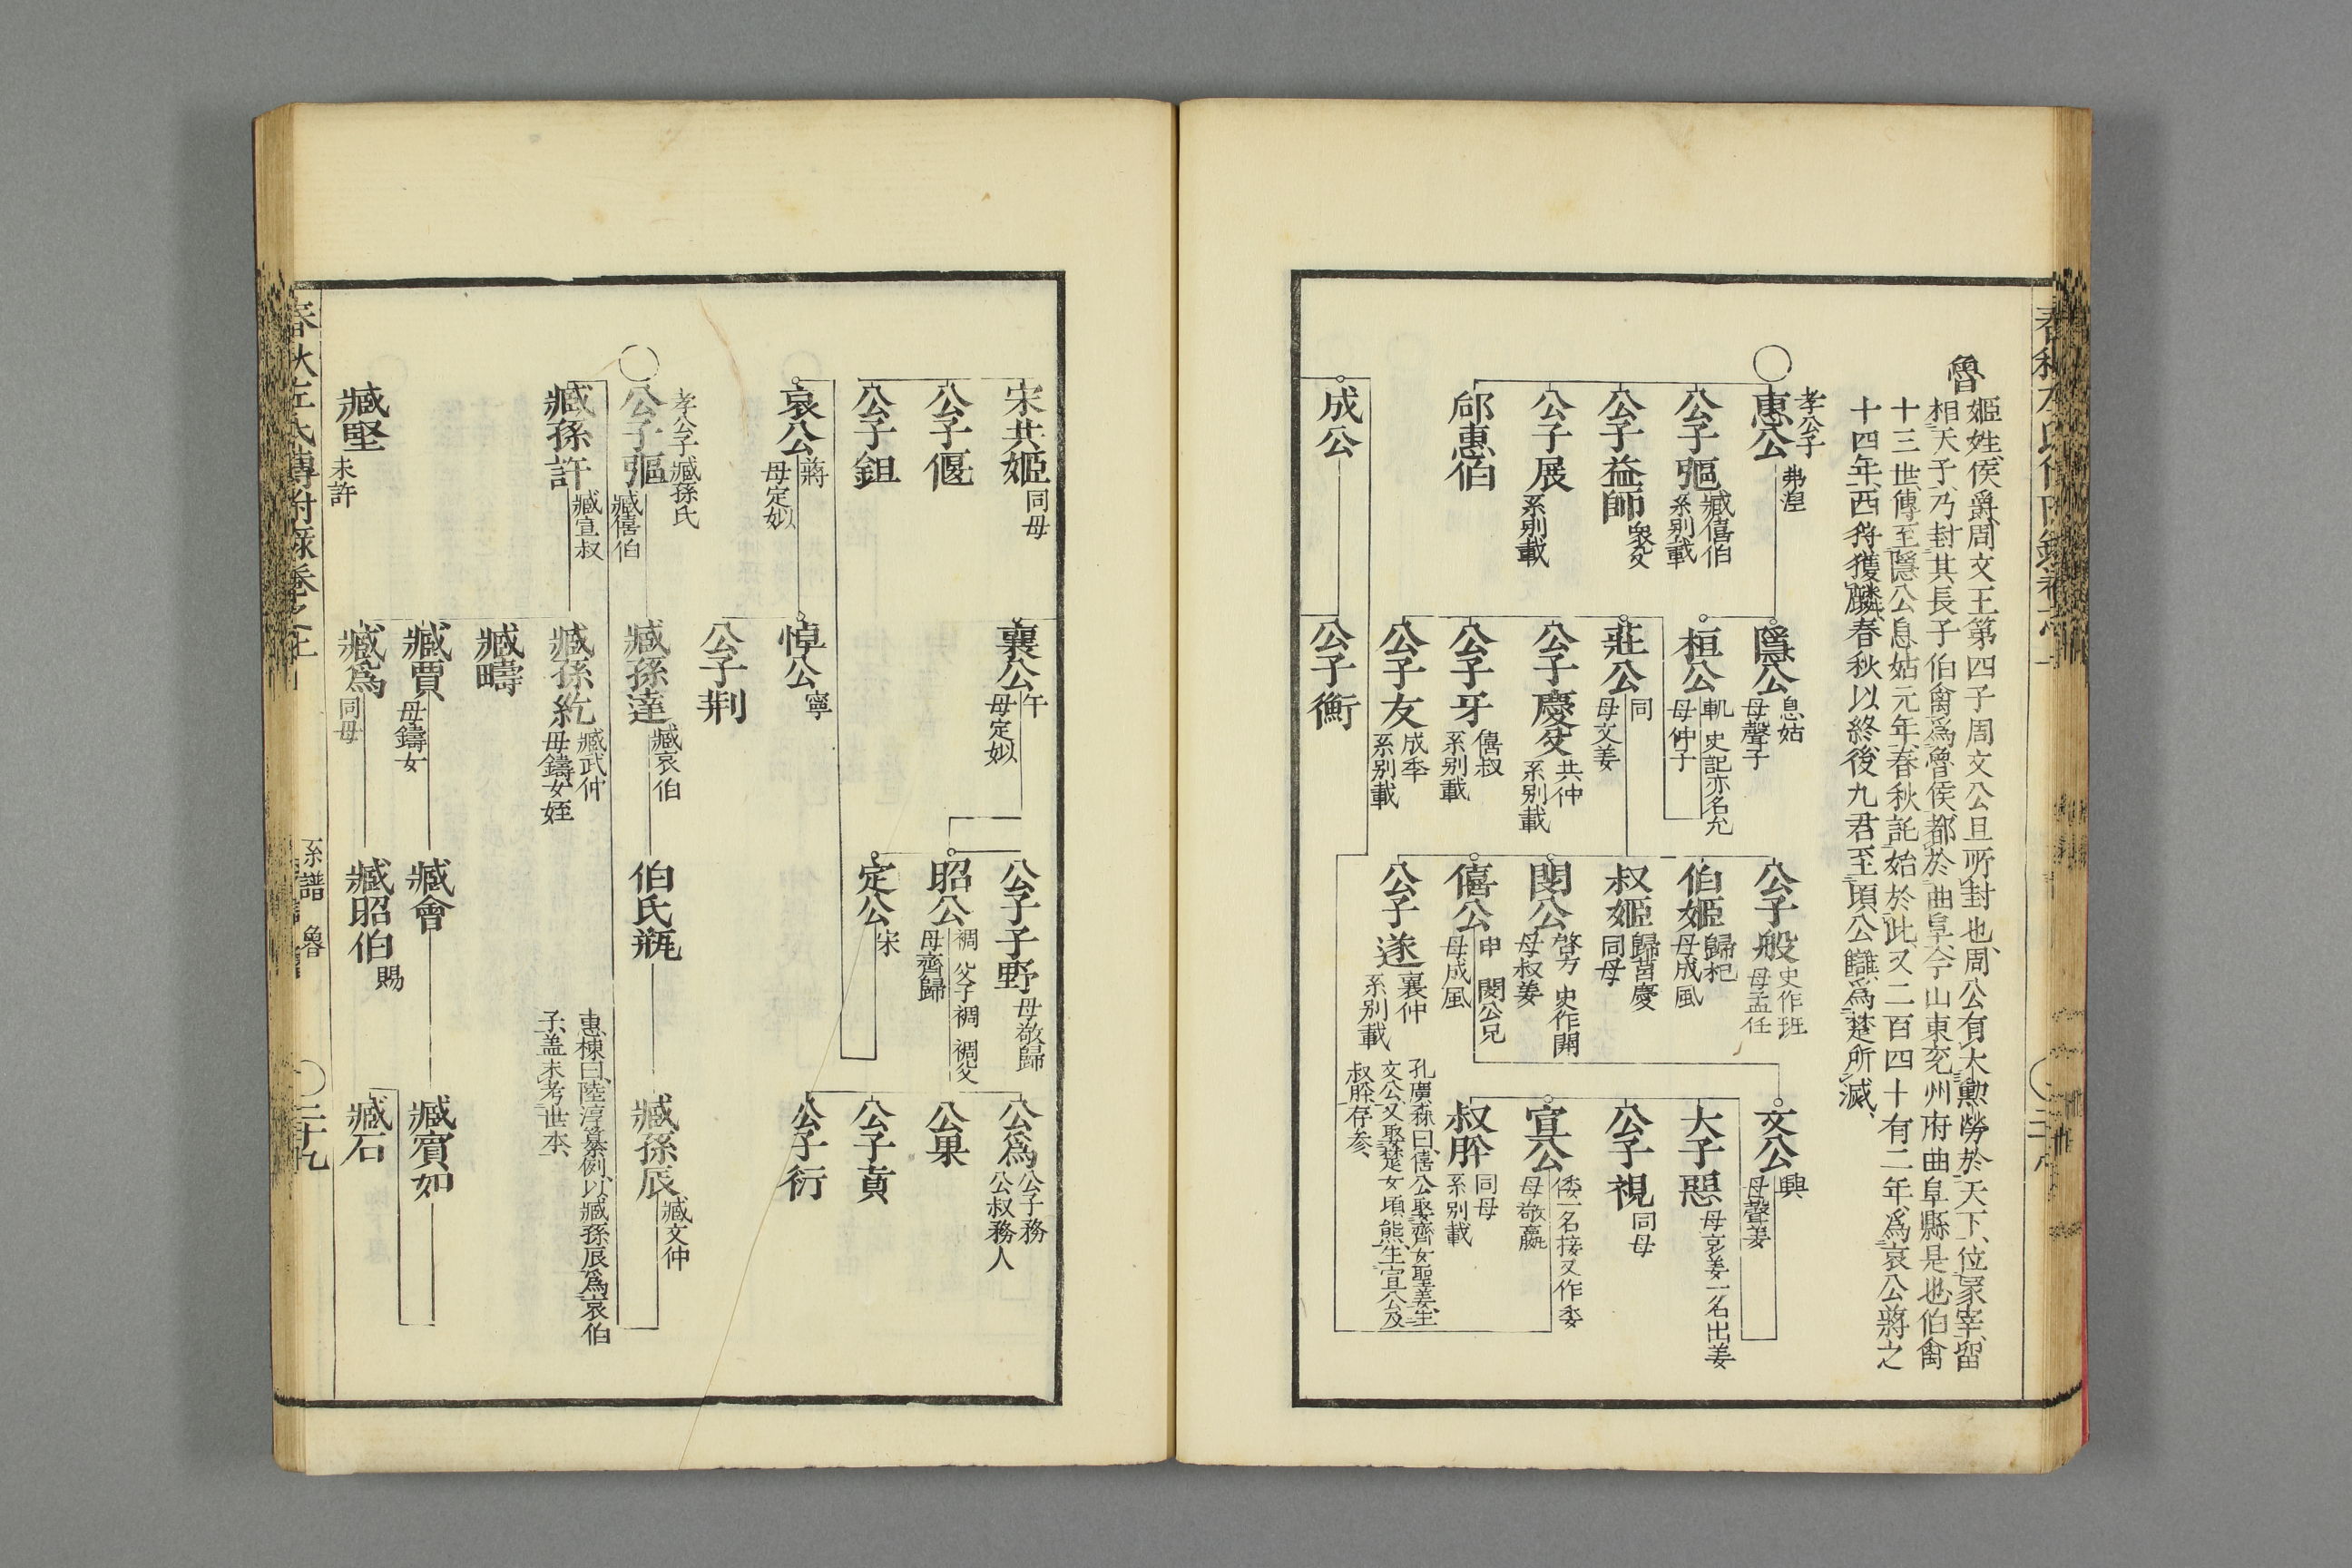 魯
姬姓侯爵周文王第四子周文公旦所封也周公有大勲勞於天下位冢宰留
相天子乃封其長子伯禽爲魯侯都於曲阜今山東兗州府曲阜縣是也伯禽
十三世傳至隱公息姑元年春秋託始於此又二百四十有二年爲哀公蔣之
十四年西狩獲麟春秋以終後九君至頃公讎爲楚所滅
孝公子
惠公 弗湟
公子彄 臧僖伯 系別載
公子益師 衆父
公子展 系別載
郈惠伯
隱公 息姑 母聲子
桓公 軌 史記亦名允 母仲子
莊公 同 母文姜
公子慶父 共仲 系別載
公子牙 僖叔 系別載
公子友 成季 系別載
公子般 史作班 母孟任
伯姬 歸杞 母成風
叔姬 歸莒慶 同母
閔公 啓方 史作開 母叔姜
僖公 申 閔公兄 母成風
公子遂 襄仲 系別載
文公 興 母聲姜
大子惡 母哀姜一名出姜
公子視 同母
宣公 倭一名接又作委 母敬嬴
叔肸 同母 系別載
孔廣森曰僖公娶齊女聖姜生
文公又娶楚女頃熊生宣公及
叔肸存參
成公
公子衡
宋共姬 同母
公子偃
公子鉏
襄公 午 母定姒
公子子野 母敬歸
昭公 裯 公子裯 裯父 母齊歸
定公 宋
公爲 公子務 公叔務人
公果
公子賁
公子衍
哀公 蔣 母定姒
悼公 寧
公子荆
孝公子臧孫氏
公子彄 臧僖伯
臧孫達 臧哀伯
伯氏瓶
臧孫辰 臧文仲
惠棟曰陸淳纂例以臧孫辰爲哀伯
子盖未考世本
臧孫許 臧宣叔
臧孫紇 臧武仲 母鑄女姪
臧疇
臧賈 母鑄女
臧爲 同母
臧會
臧昭伯 賜
臧賓如
臧石
臧堅 未許
春秋左氏傳附錄卷之上
系譜 魯
二十九